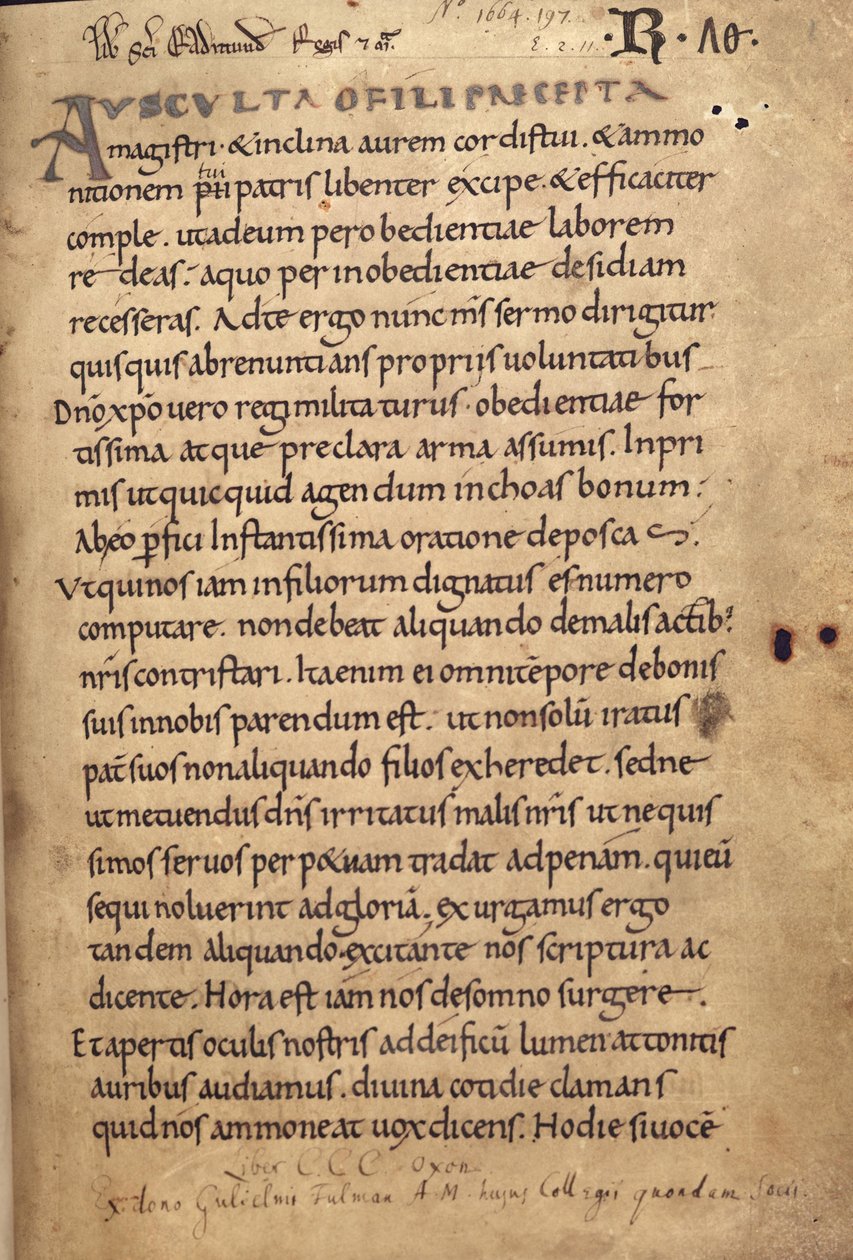 Nº. 1664. 197.
Lib Sci Eadmund Regis ⁊ mr̄.
E. 2. 11.
·R· Λ0.
AUSCULTA O FILI PRECEPTA
magistri· & inclina aurem cordis tui. & ammo
nitionem pii patris libenter excipe· & efficaciter
tui
comple. ut ad eum per obedientiae laborem
redeas: a quo per inobedientiae desidiam
recesseras. Ad te ergo nunc m̄s sermo dirigitur
quisquis abrenuntians propriis uoluntatibus
Dn̄o xp̄o uero regi militaturus· obedientiae for
tissima atque preclara arma assumis. In pri
mis ut quicquid agendum inchoas bonum:
Ab eo ꝑfici Instantissima oratione deposcas.
Ut qui nos iam in filiorum dignatus es numero
computare. non debeat aliquando de malis actib:
nr̄is contristari. Ita enim ei omni tēpore de bonis
suis in nobis parendum est. ut non solū iratus
pat̄ suos non aliquando filios exheredet. sed ne
ut metuendus dn̄s irritatus malis nr̄is ut nequis
simos seruos perp&uam tradat ad penam. qui eū
sequi noluerint ad gloriā. exurgamus ergo
tandem aliquando· excitante nos scriptura ac
dicente. Hora est iam nos de somno surgere.
Et apertis oculis nostris ad deificū lumen attonitis
auribus audiamus. diuina cotidie clamans
quid nos ammoneat uox dicens. Hodie si uocē
Liber C. C. C. Oxon
Ex dono Gulielmi Fulman A.M. hujus Collegii quondam Socii.